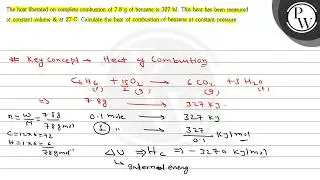 The heat liberated on complete combustion of 7.8 g of benzene is 327 kJ. This heat has been measured
at constant volume & at 27°C. Calculate the heat of combustion of benzene at constant pressure
# Key concept → Heat of Combustion
C6H6(l) + 15/2 O2(g) → 6 CO2(g) + 3 H2O(l)
⇒ 7.8g → 327 KJ
n = W/M = 7.8g/78g mol 0.1 mole → 327 KJ
C = 12×6 = 72 1 " → 327/0.1 KJ/mol
H = 1×6 = 6
78g mol⁻¹ ΔU ⇒ Hc ⇒ - 3270 KJ/mol
↳ Internal energy